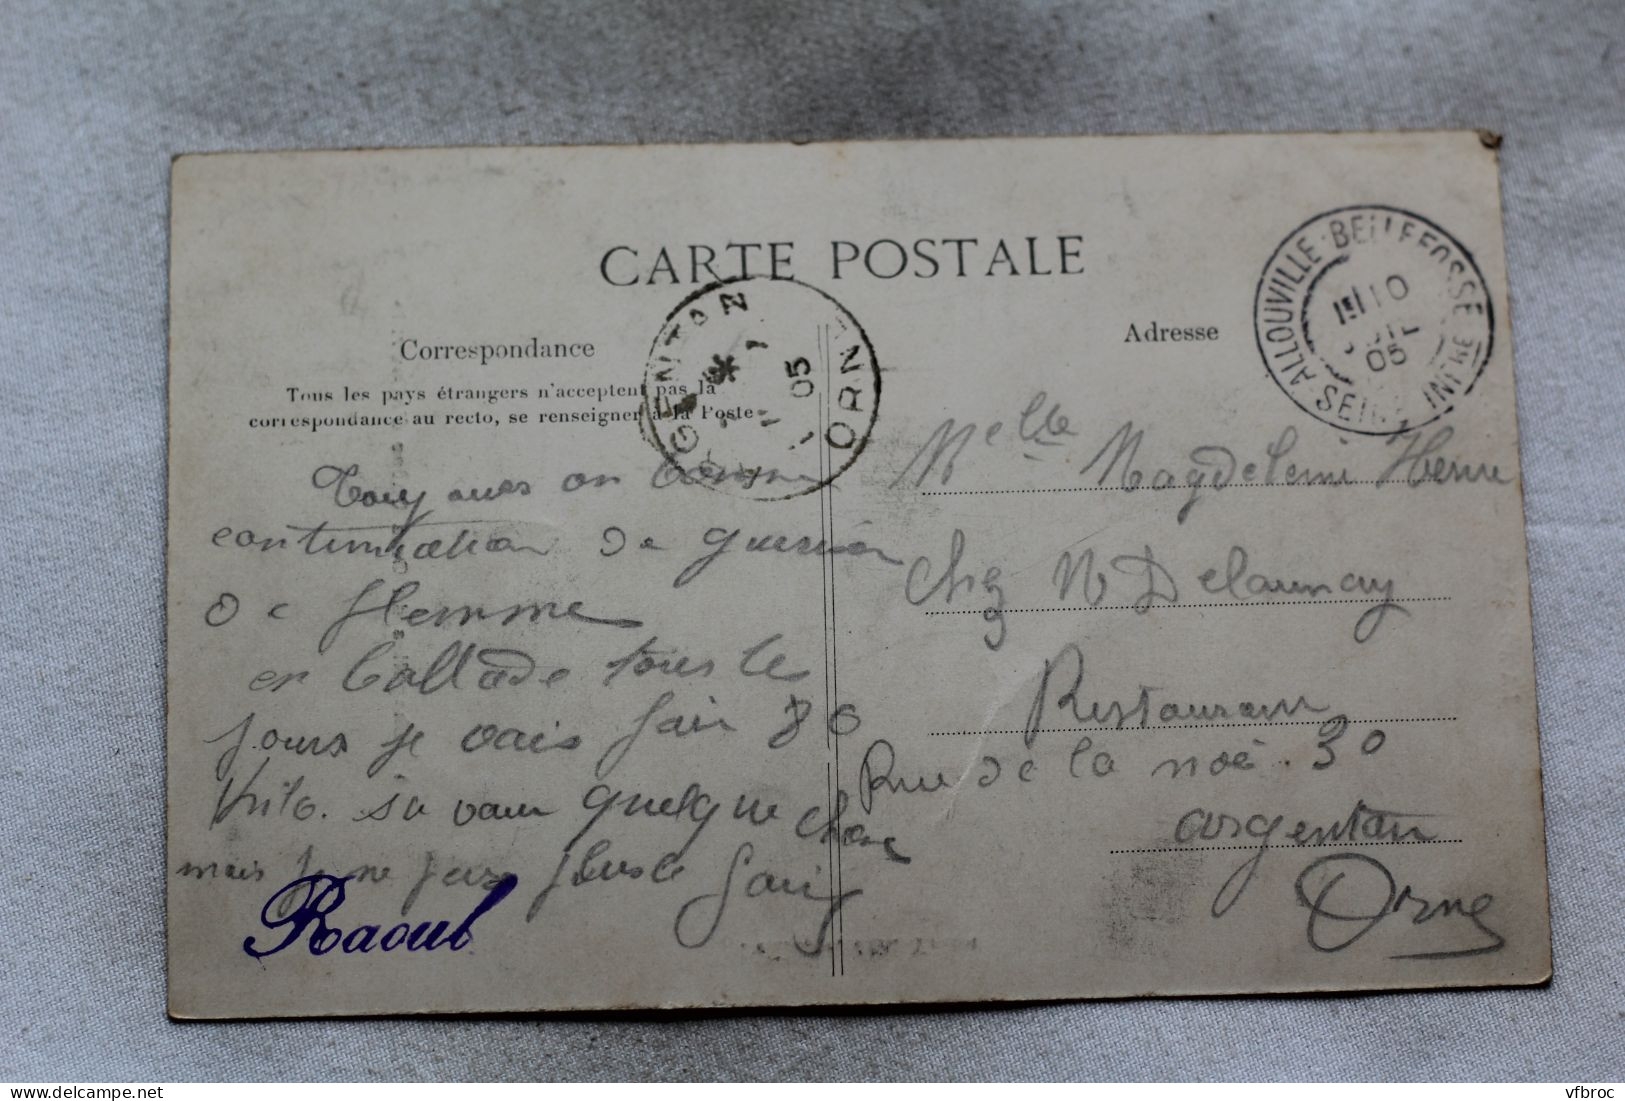 CARTE POSTALE
Correspondance
Tous les pays étrangers n'acceptent pas la
correspondance au recto, se renseigner à la Poste
Toujours en bonne
continuation de guerison
de flemme
en ballade tous les
jours je vais fair 80
Kilo. sa vaux quelque chose
mais je ne peux plus le
Raoul
Adresse
ALLOUVILLE-BELLEFOSSE
SEINE INFRE
10
05
ARGENTAN
ORNE
05
Melle Magdeleine
chez Mr Delaunay
Restaurant
Rue de la noë. 30
argentan
Orne
delcampe.net
vfbroc